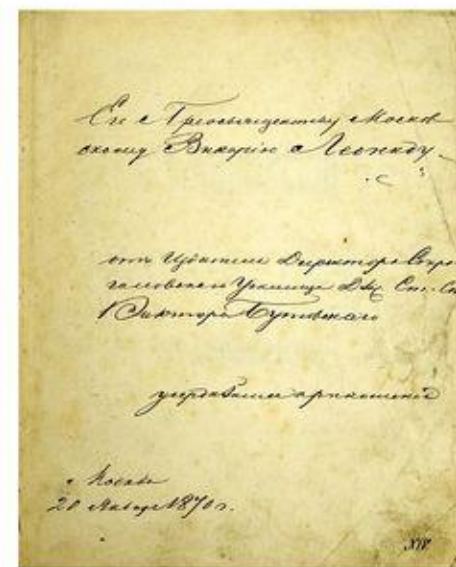 Его Преосвященству Москов
скому Викарію Леониду
отъ Издателя Директора Стро
гановскаго Училища Дѣй. Ст. Со
Виктора Бутовскаго
усерднѣйшее приношеніе
г. Москва
20 Января 1870 г.
XIV.